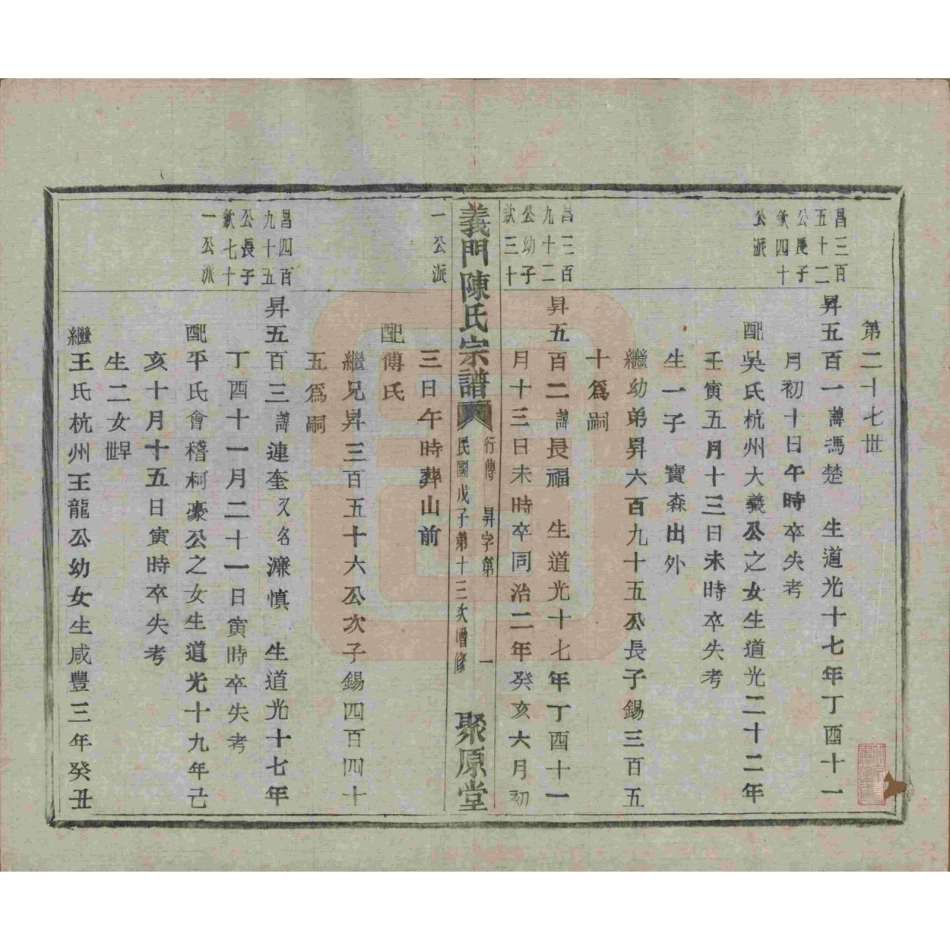 第二十七世
昌三百
五十二
公長子
欽四十
公派
昇五百一諱馮楚　生道光十七年丁酉十一
月初十日午時卒失考
配吳氏杭州大義公之女生道光二十二年
壬寅五月十三日未時卒失考
生一子　寶森出外
繼幼弟昇六百九十五公長子錫三百五
十爲嗣
昌三百
九十二
公幼子
欽三十
昇五百二諱長福　生道光十七年丁酉十一
月十三日未時卒同治二年癸亥六月初
義門陳氏宗譜
行傳　昇字第　一
民國戊子第十三次增修
聚原堂
一公派
三日午時葬山前
配傅氏
繼兄昇三百五十六公次子錫四百四十
五爲嗣
昌四百
九十五
公長子
欽七十
一公派
昇五百三諱連奎又名濂慎　生道光十七年
丁酉十一月二十一日寅時卒失考
配平氏會稽柯豪公之女生道光十九年己
亥十月十五日寅時卒失考
生二女世
繼王氏杭州王龍公幼女生咸豐三年癸丑